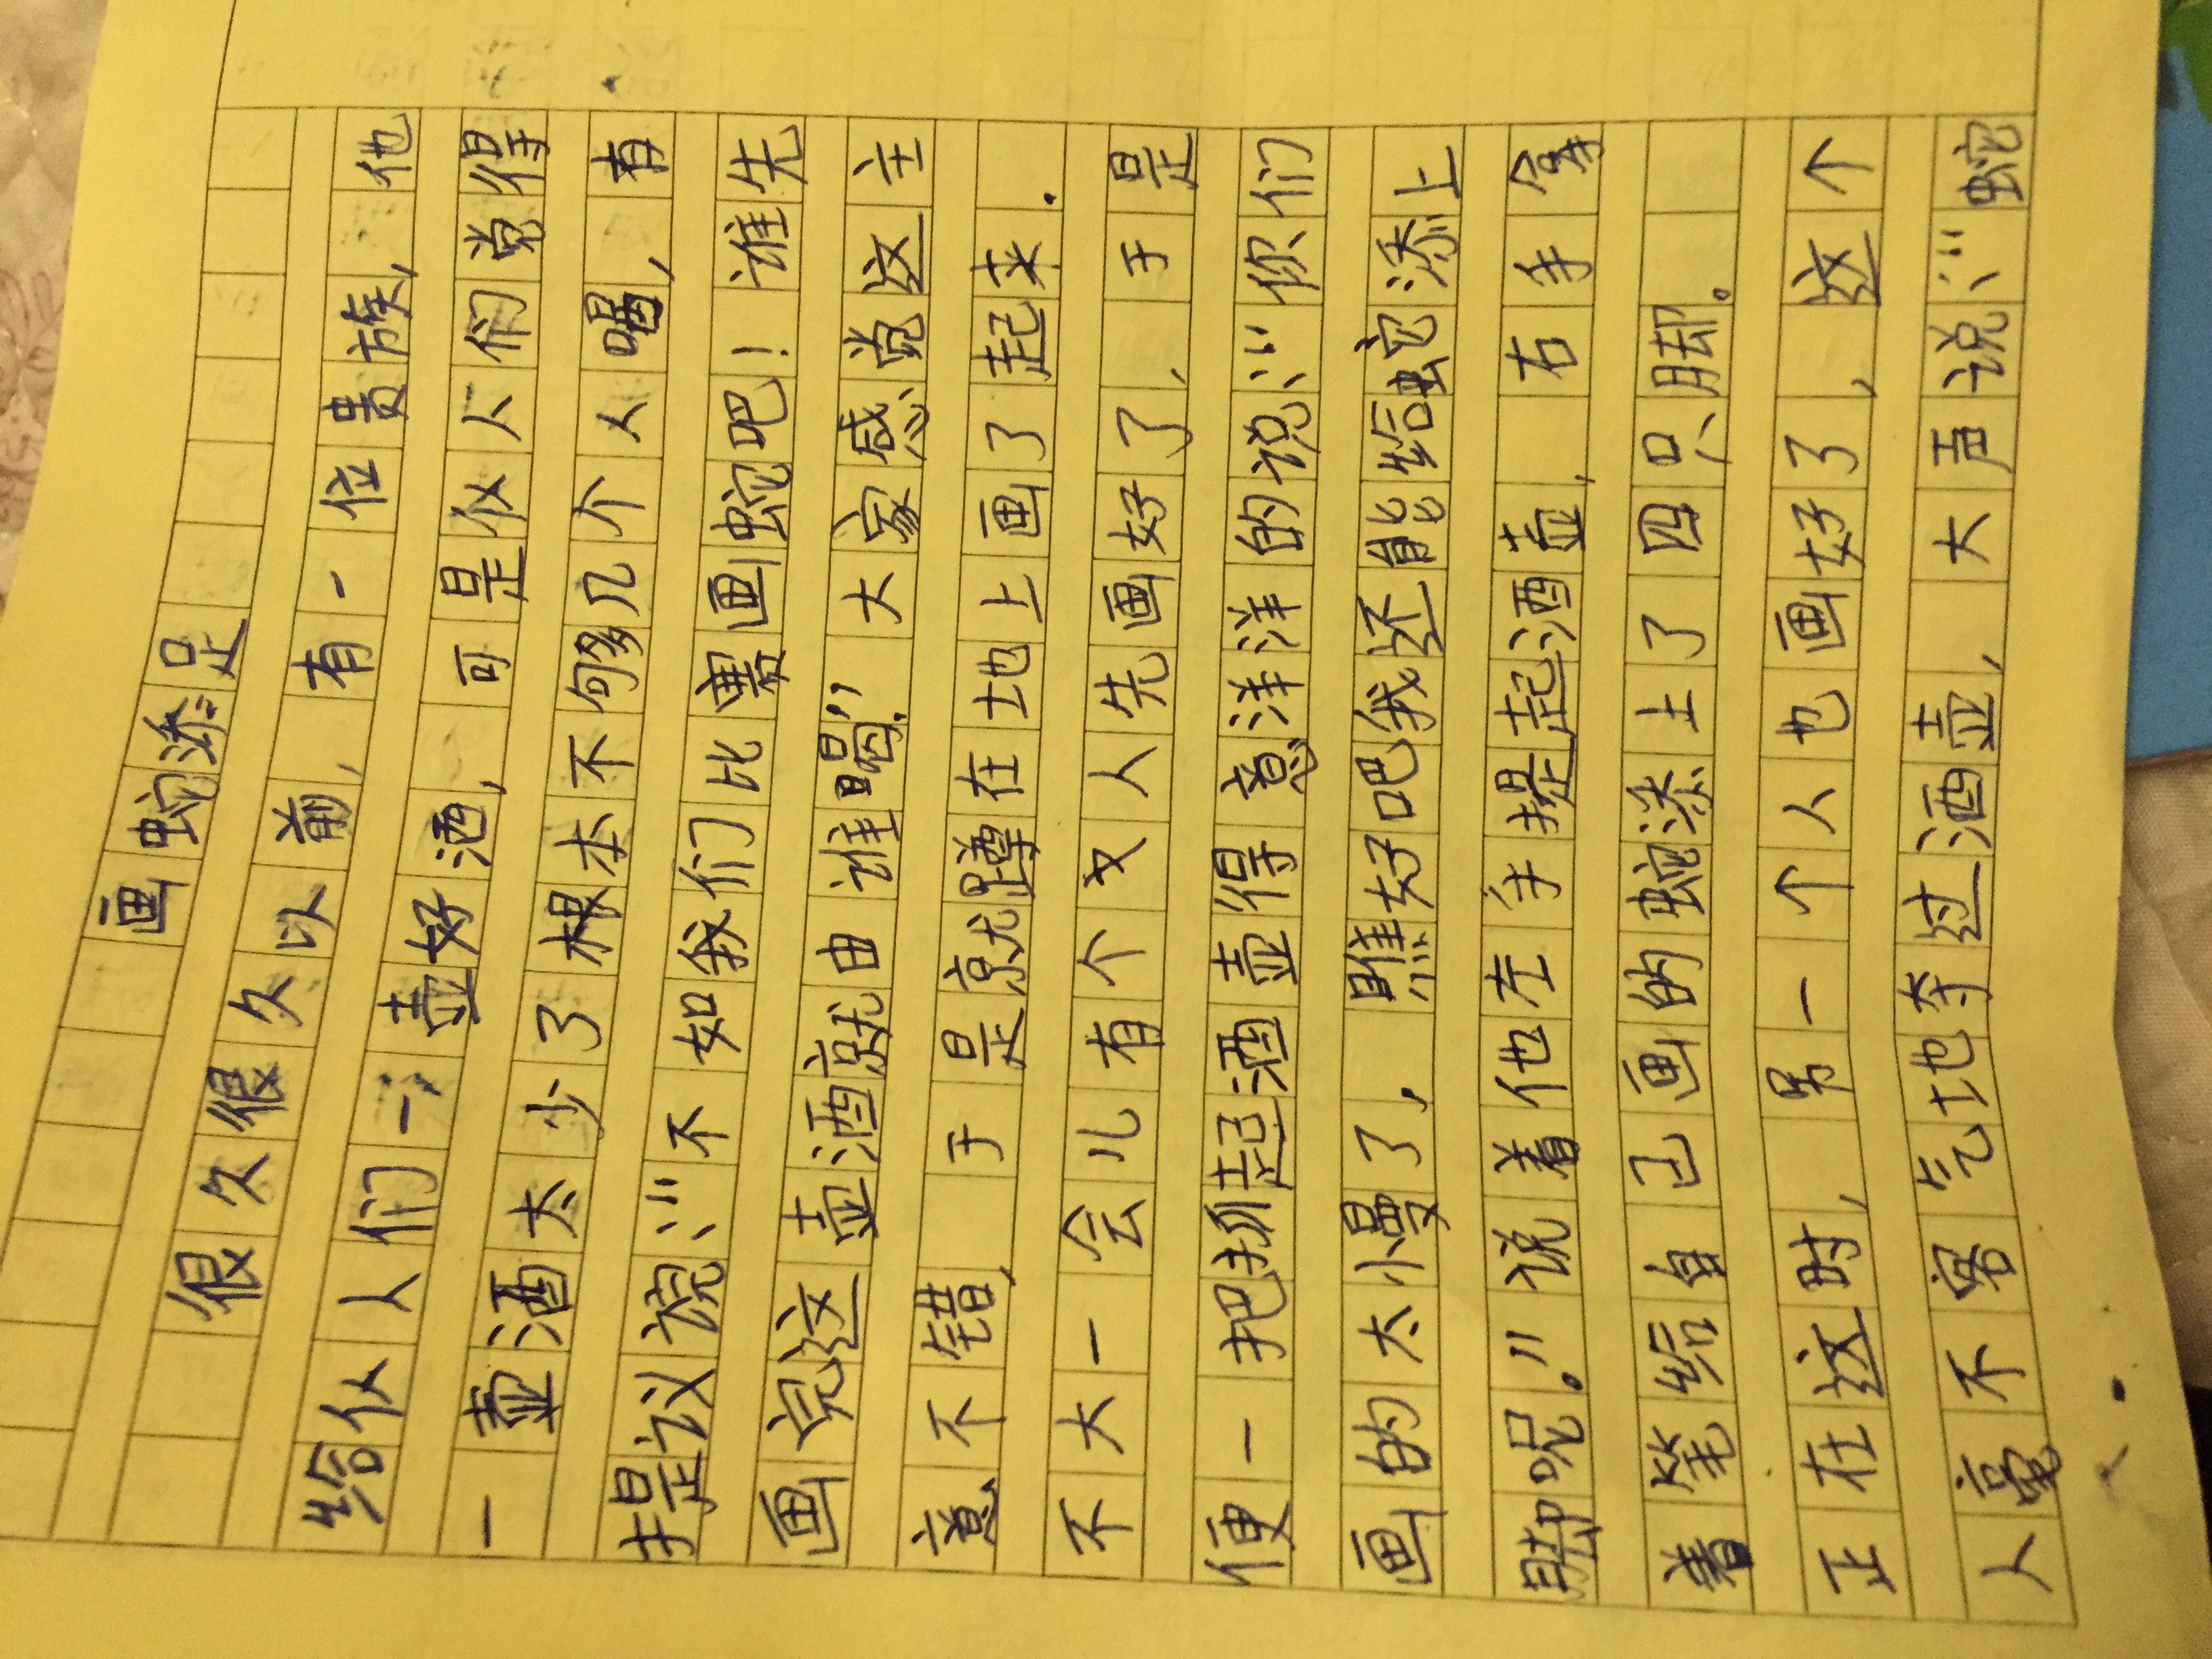 画蛇添足
很久很久以前，有一位贵族，他
给仆人们一壶好酒，可是仪人们觉得
一壶酒太少了根本不够几个人喝，有
提议说：“不如我们比赛画蛇吧！谁先
画完这壶酒就由谁喝”大家感觉这主
意不错，于是就蹲在地上画了起来．
不大一会儿有个女人先画好了，于是
便一把抓起酒壶得意洋洋的说：“你们
画的太慢了，瞧好吧我还能给蛇添上
脚呢．”说着他左手提起酒壶，右手拿
着笔给自己画的蛇添上了四只脚。
正在这时，另一个人也画好了，这个
人毫不客气地夺过酒壶，大声说：“蛇